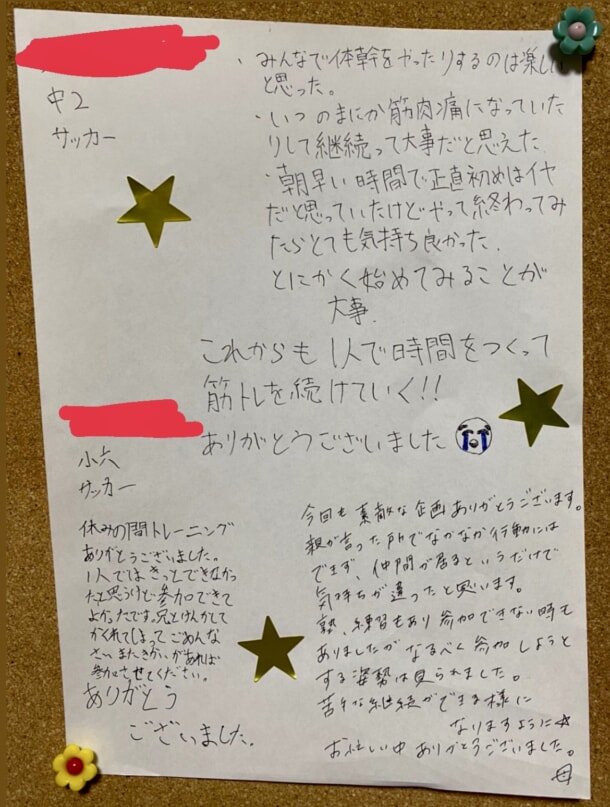 中2
サッカー
・みんなで体幹をやったりするのは楽しい
と思った。
・いつのまにか筋肉痛になっていた
りして継続って大事だと思えた.
・朝早い時間で正直初めはイヤ
だと思っていたけどやって終わってみ
たらとても気持ち良かった.
とにかく始めてみることが
大事.
これからも1人で時間をつくって
筋トレを続けていく!!
ありがとうございました
小六
サッカー
休みの間トレーニング
ありがとうございました。
1人ではきっとできなかっ
たと思うけど参加できて
よかったです。兄とけんかして
かくれてしまってごめんな
さい。またきかいがあれば
参加させてください。
ありがとう
ございました.
今回も素敵な企画ありがとうございます。
親が言った所でなかなか行動には
でず、仲間が居るというだけで
気持ちが違ったと思います。
塾、練習もあり参加できない時も
ありましたがなるべく参加しようと
する姿勢は見られました。
苦手な継続ができる様に
なりますように☆
お忙しい中ありがとうございました。
母